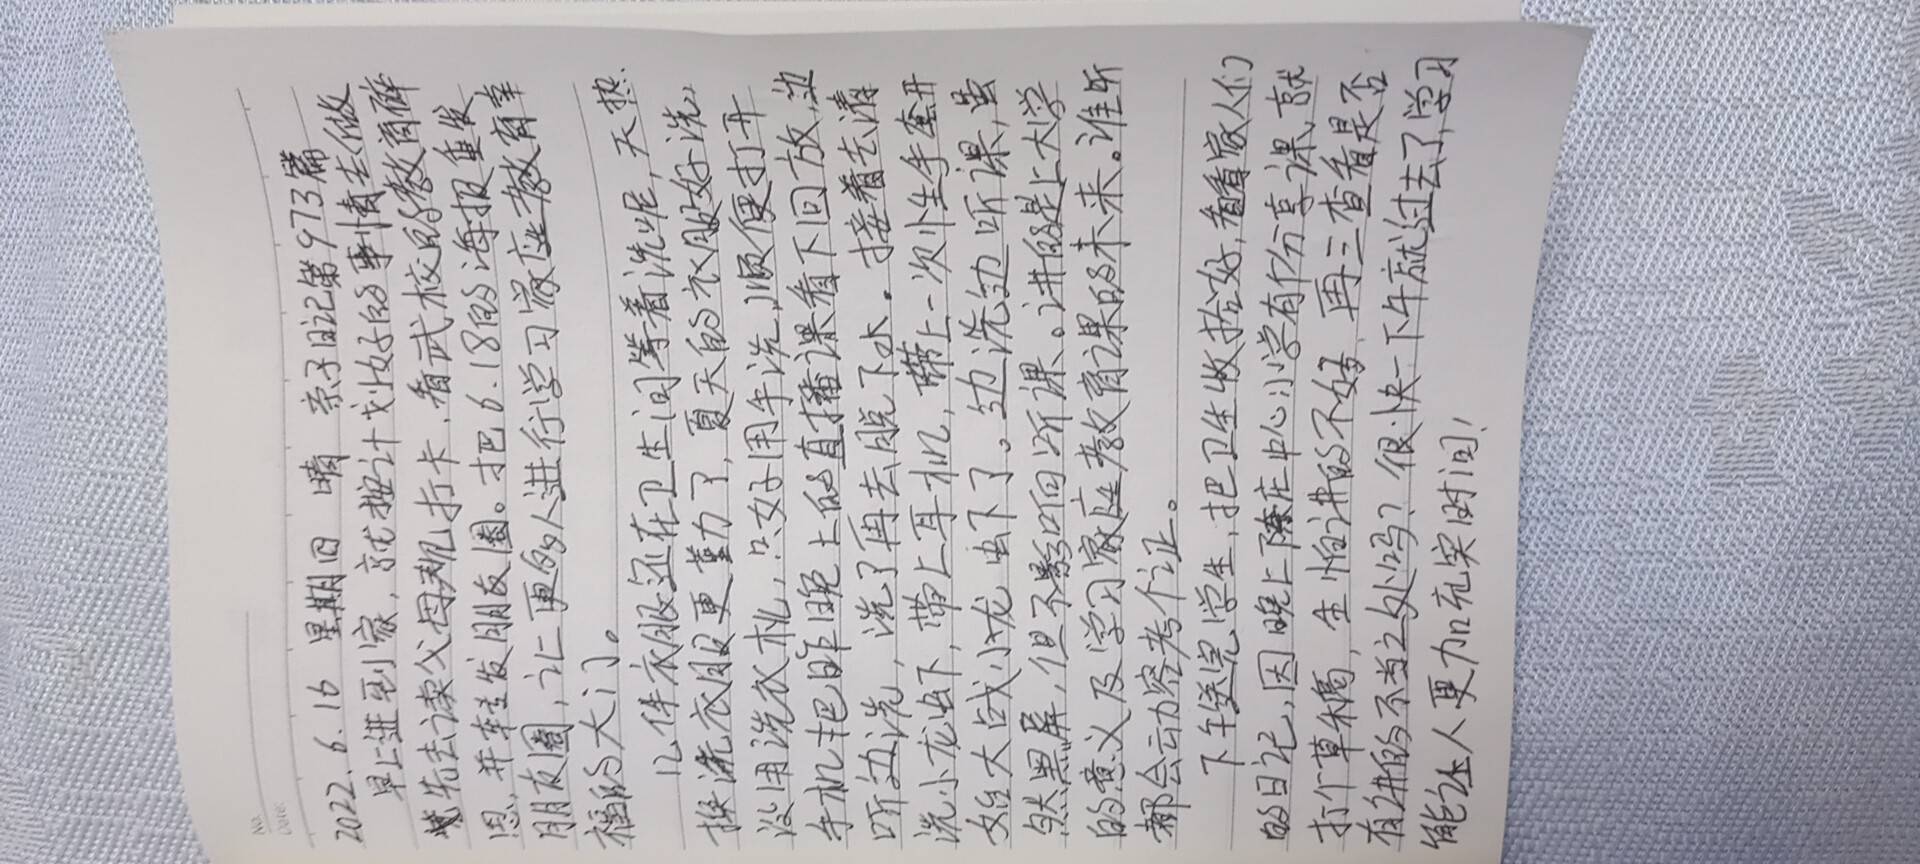 No.
Date.
2022.6.16 星期四 晴 亲子日记第973篇
早上进到家,就按计划好的事情去做
先去读父母规打卡,看武校的教官解
恩,并转发朋友圈。把6.18的海报重发
朋友圈,让更的人进行学习家庭教育幸
福的大门。
几件衣服还在卫生间等着洗呢,天热.
换洗衣服更勤了,夏天的衣服好洗,
没用洗衣机,只好用手洗,顺便打开
手机把昨晚上的直播课看下回放,边
听边洗,洗了再去脱下水.接着去清
洗小龙虫下,带上耳机,带上一次性手套开
始大战小龙虫下了。边洗边听课,虽
然黑屏,但不影响听课。讲的是上大学
的意义及学习家庭教育课的未来。谁听
都会动容考个证。
下午送完学生,把卫生收拾好,看看家人们
的日记,因晚上了庄中心小学有个分享课,就
打个草稿,生怕讲的不好,再三查看是否
有讲的不当之处吗?很快一下午就过去了,学习
能让人更加充实时间!